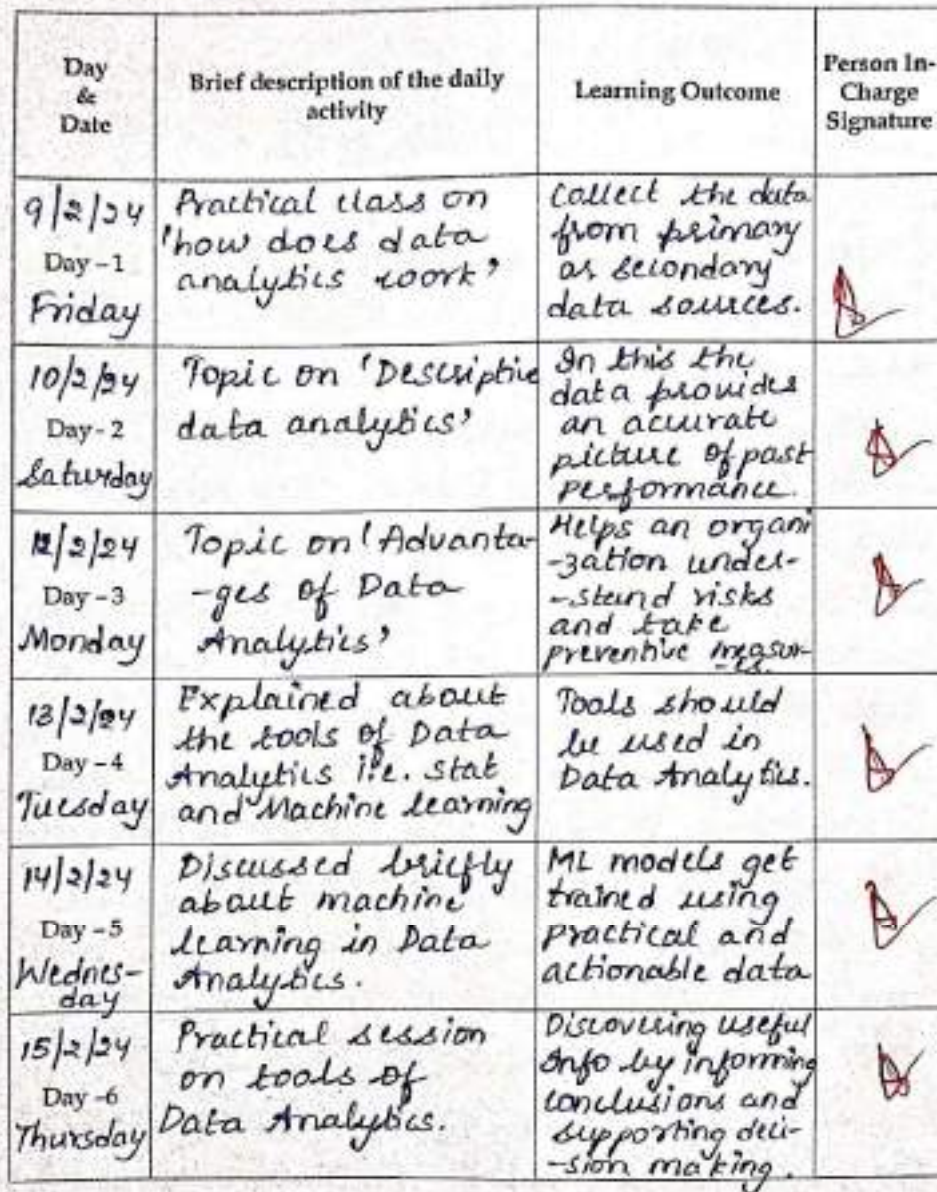 Day
&
Date
Brief description of the daily
activity
Learning Outcome
Person In-
Charge
Signature
9/2/24
Day - 1
Friday
Practical class on
'how does data
analytics work'
Collect the data
from primary
or secondary
data sources.
10/2/24
Day - 2
Saturday
Topic on 'Descriptive
data analytics'
In this the
data provides
an accurate
picture of past
performance.
12/2/24
Day - 3
Monday
Topic on 'Advanta-
-ges of Data
Analytics'
Helps an organi
-zation under-
-stand risks
and take
preventive measur-
-es.
13/2/24
Day - 4
Tuesday
Explained about
the tools of Data
Analytics i.e. Stat
and Machine learning
Tools should
be used in
Data Analytics.
14/2/24
Day - 5
Wednes-
day
Discussed briefly
about machine
learning in Data
Analytics.
ML models get
trained using
practical and
actionable data
15/2/24
Day - 6
Thursday
Practical session
on tools of
Data Analytics.
Discovering useful
Info by informing
conclusions and
supporting deci-
-sion making.